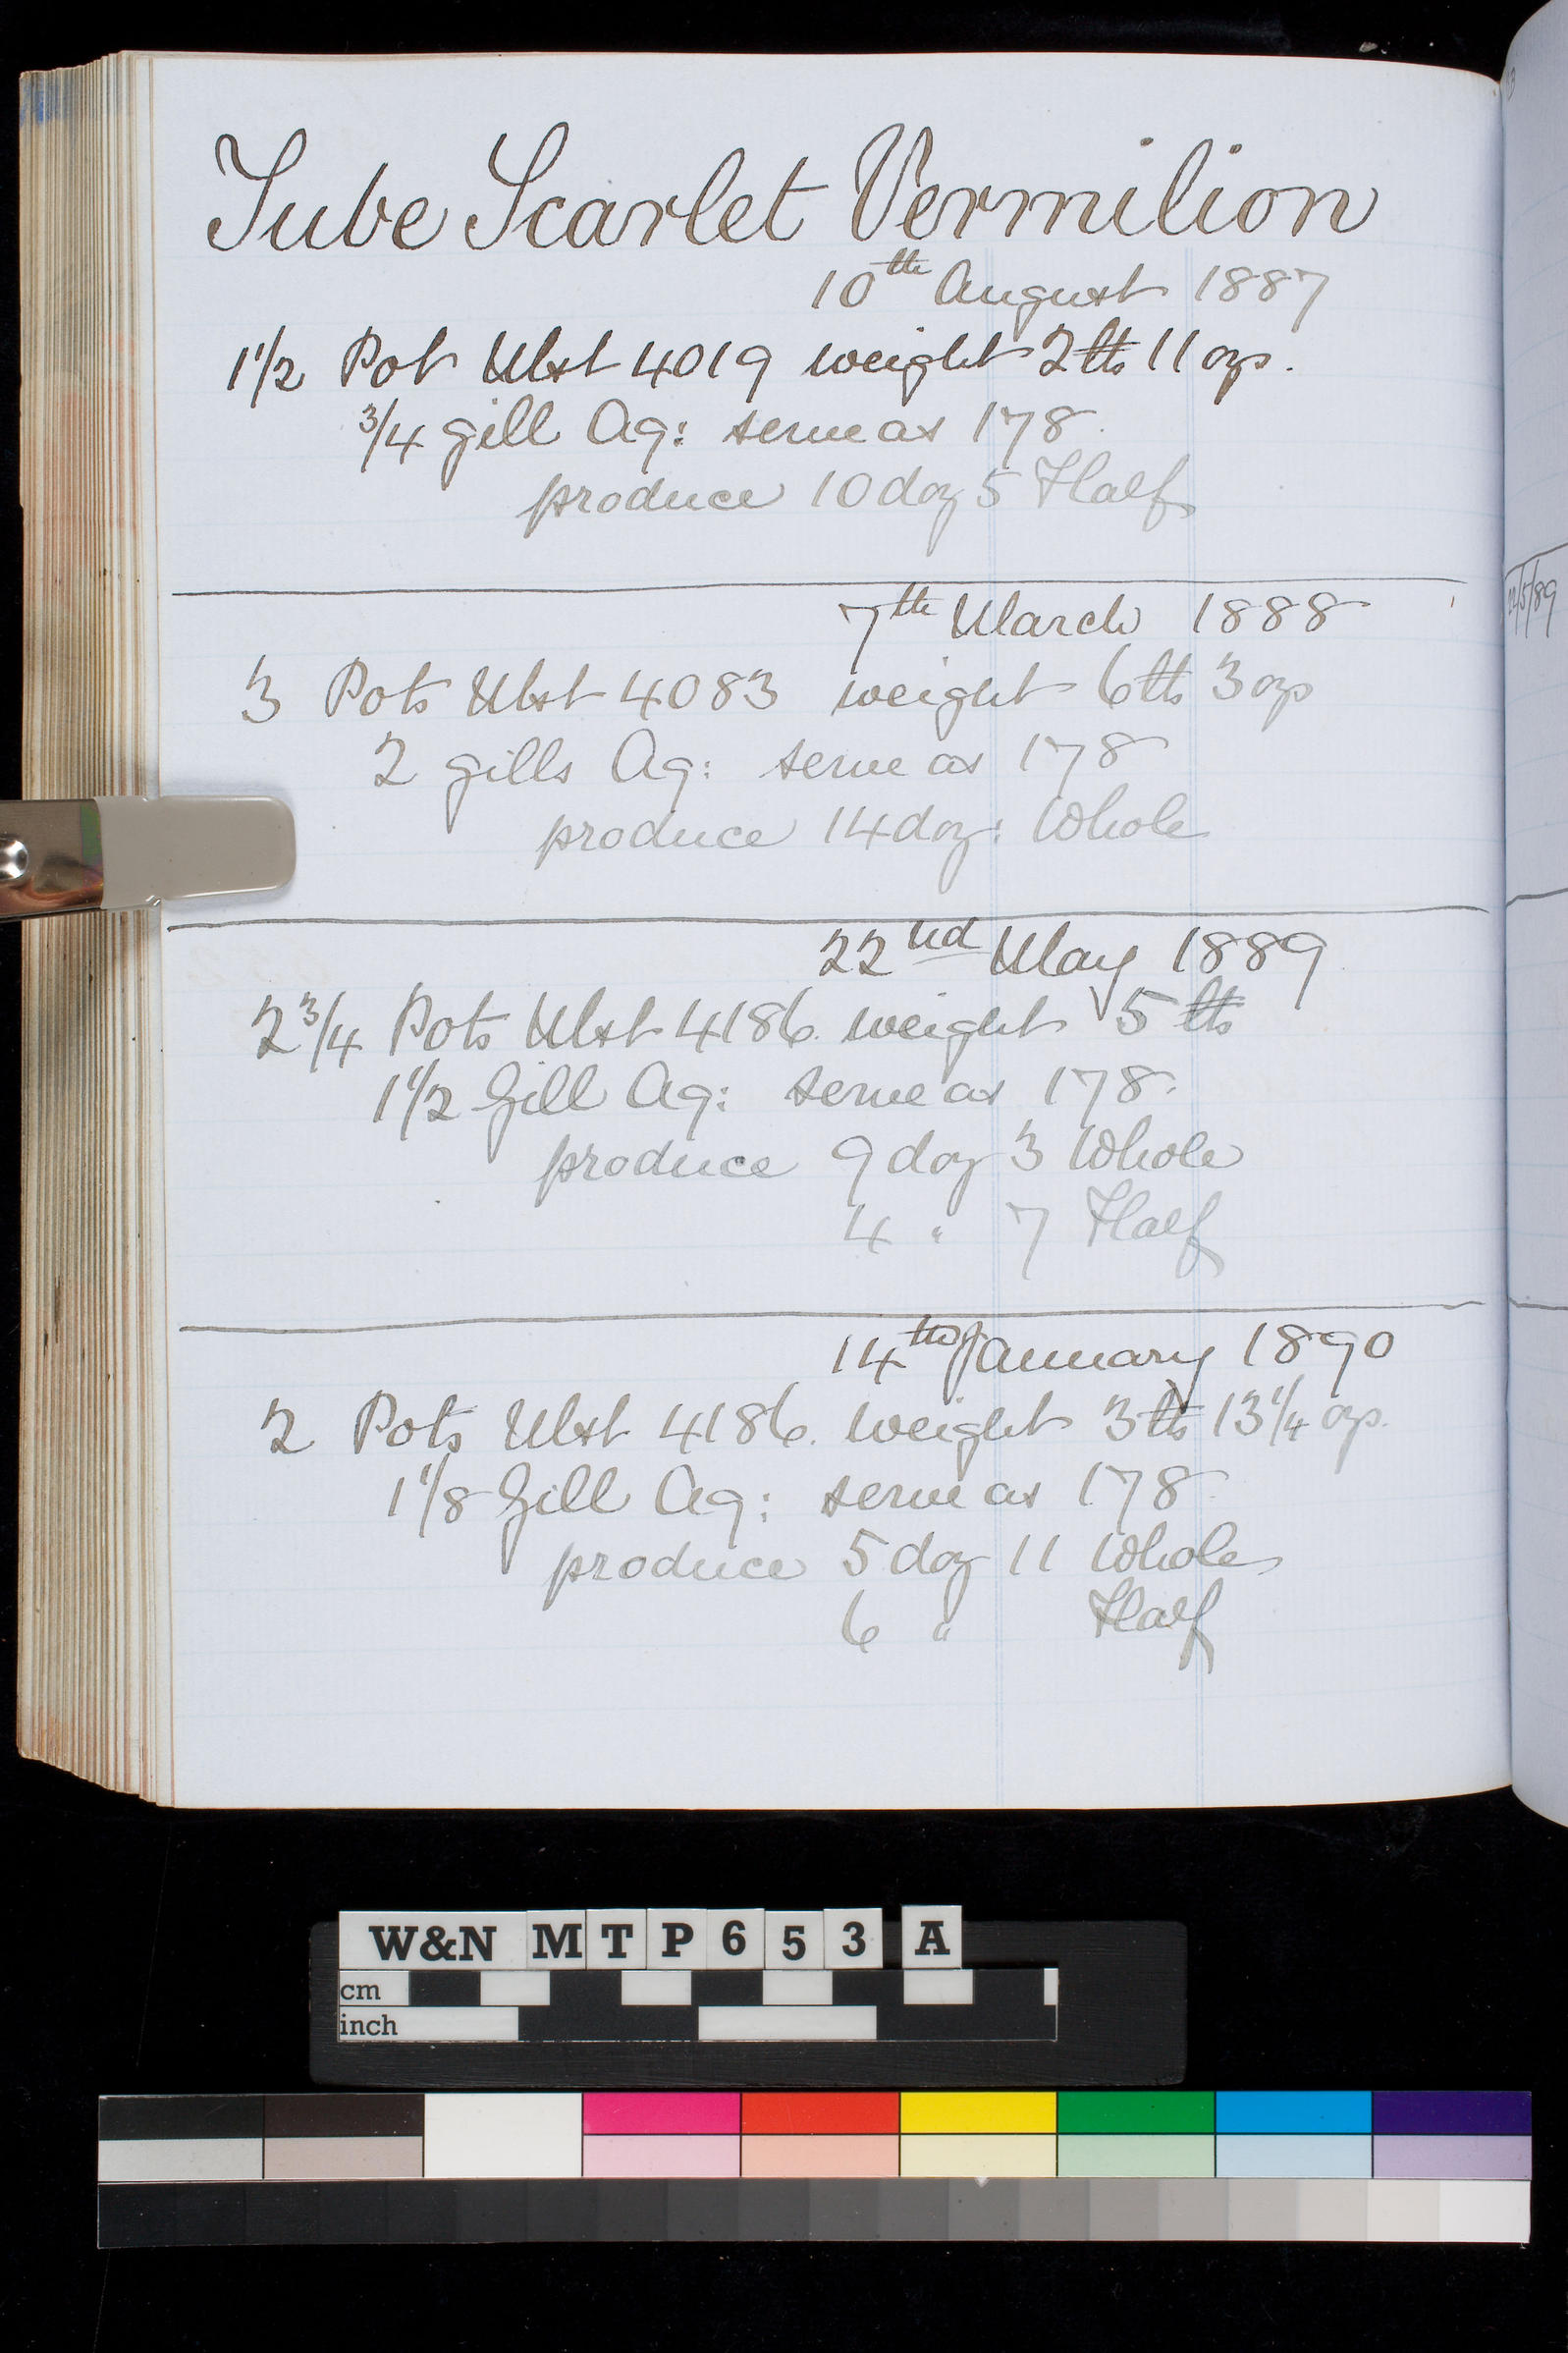 Tube Scarlet Vermilion
10th August 1887
1 1/2 Pot Mst 4019 weight 2 lbs 11 ozs.
3/4 gill Aq: serve as 178.
produce 10 doz 5 Half
7th March 1888
3 Pots Mst 4083 weight 6 lbs 3 ozs
2 gills Aq: serve as 178
produce 14 doz: Whole
22nd May 1889
2 3/4 Pots Mst 4186. weight 5 lbs
1 1/2 Gill Aq: serve as 178.
produce 9 doz 3 Whole
4 " 7 Half
14th January 1890
2 Pots Mst 4186. weight 3 lbs 13 1/4 ozs.
1 1/8 Gill Aq: serve as 178.
produce 5 doz 11 Whole
6 " Half
W&N MTP653 A
cm
inch